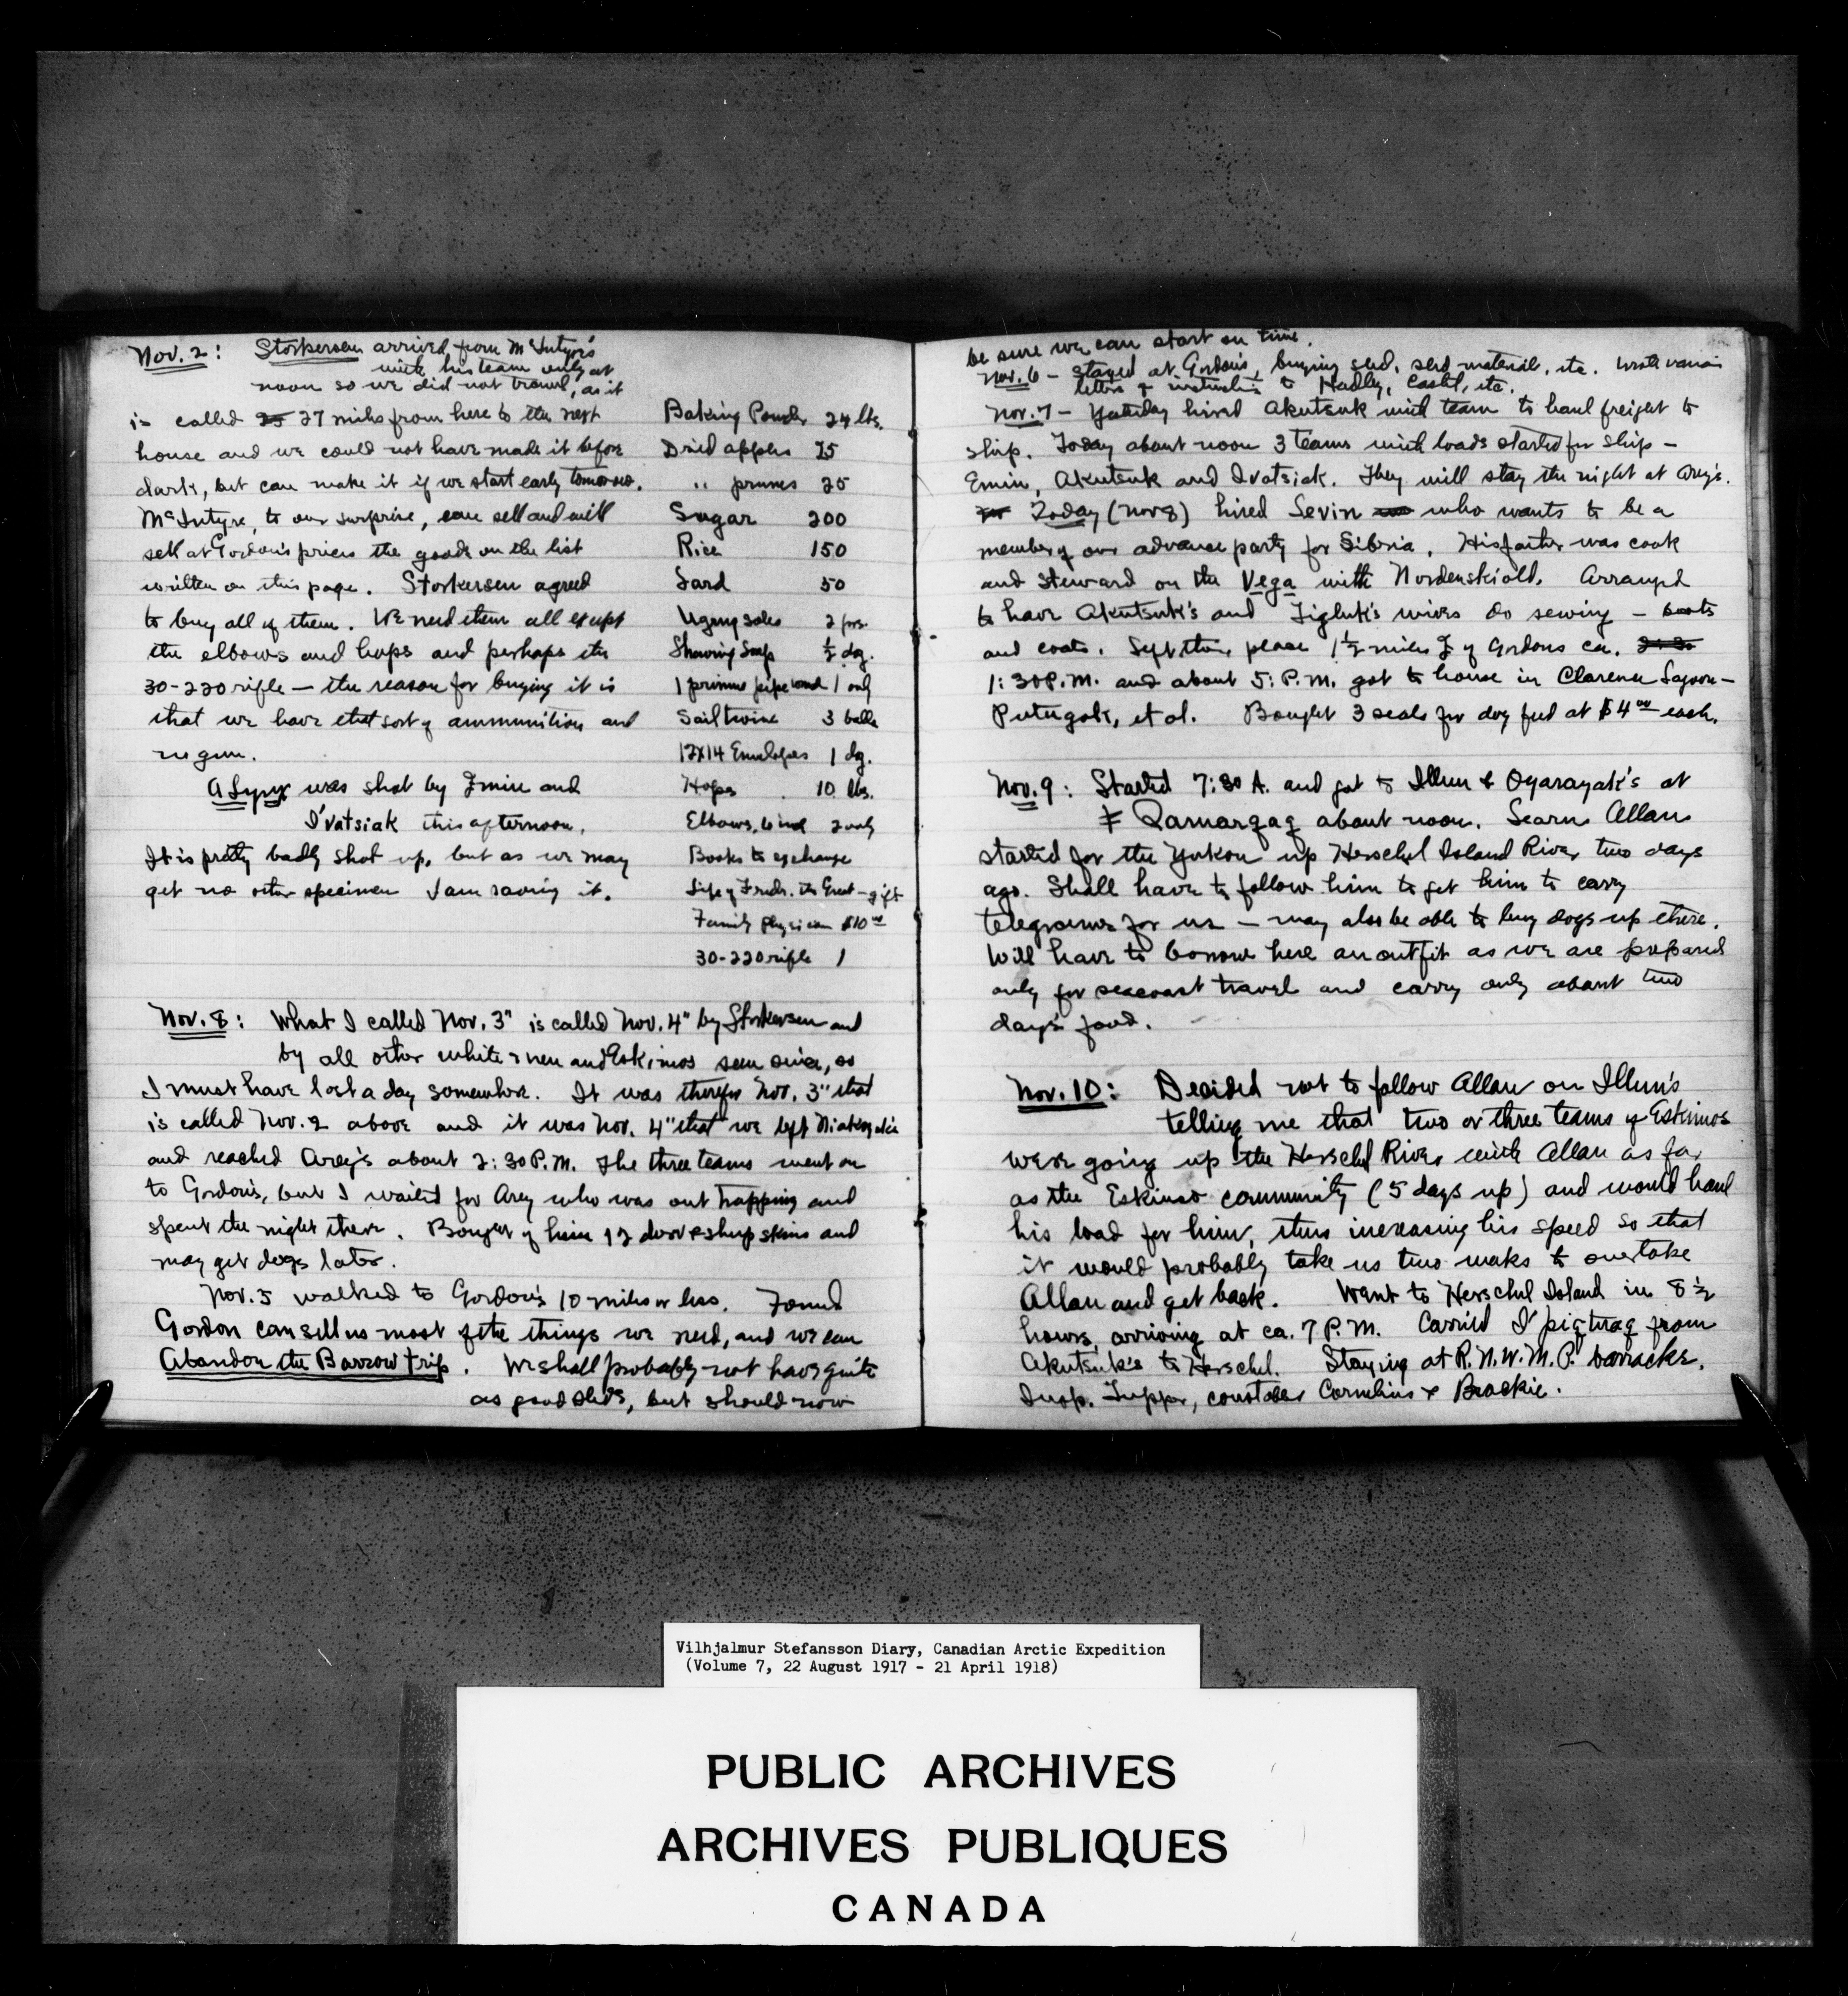 Nov. 2: Storkersen arrived from McIntyre's
with his team only at
noon so we did not travel, as it
is called 25 27 miles from here to the next
house and we could not have made it before
dark, but can make it if we start early tomorrow.
McIntyre, to our surprise, can sell and will
sell at Gordon's prices the goods on the list
written on this page. Storkersen agreed
to buy all of them. We need them all except
the elbows and hops and perhaps the
30-220 rifle — the reason for buying it is
that we have that sort of ammunition and
no gun.
A Lynx was shot by Emiu and
I'vatsiak this afternoon.
It is pretty badly shot up, but as we may
get no other specimen I am saving it.
Baking Powder 24 lbs.
Dried apples 25
" prunes 25
Sugar 200
Rice 150
Lard 50
Ugrug soles 2 prs.
Shaving Soap ½ dz.
1 primus pipe 1 only
Sail twine 3 balls
12X14 Envelopes 1 dz.
Hops 10 lbs.
Elbows, 6 inch 2 only
Books to exchange
Life of Fredr. the Great — gift
Family physician $10.00
30-220 rifle 1
Nov. 8: What I called Nov. 3" is called Nov. 4" by Storkersen and
by all other white men and Eskimos seen since, so
I must have lost a day somewhere. It was therefore Nov. 3" that
is called Nov. 2 above and it was Nov. 4" that we left
and reached Arey's about 2:30 P.M. The three teams went on
to Gordon's, but I waited for Arey who was out trapping and
spent the night there. Bought of him 12 deer & sheep skins and
may get dogs later.
Nov. 5 walked to Gordon's 10 miles or less. Found
Gordon can sell us most of the things we need, and we can
Abandon the Barrow trip. We shall probably not have quite
as good sleds, but should now
be sure we can start on time.
Nov. 6 — Stayed at Gordon's, buying sled, sled material, etc. Wrote various
letters & instructions to Hadley, Castel, etc.
Nov. 7 — Yesterday hired Akutsuk with team to haul freight to
ship. Today about noon 3 teams with loads started for ship —
Emiu, Akutsuk and Ivatsiak. They will stay the night at Arey's.
Today (Nov 8) hired Levin who wants to be a
member of our advance party for Siberia. His father was cook
and steward on the Vega with Nordenskiold. Arranged
to have Akutsuk's and Tigluk's wives do sewing — boots
and coats. Left their place 1½ miles E of Gordons ca.
1:30 P.M. and about 5: P.M. got to house in Clarence Lagoon —
Putugok, et al. Bought 3 seals for dog feed at $4.00 each.
Nov. 9: Started 7:30 A. and got to Illun & Oyarayak's at
Qamarqaq about noon. Learn Allan
started for the Yukon up Herschel Island River two days
ago. Shall have to follow him to get him to carry
telegrams for us — may also be able to buy dogs up there.
Will have to borrow here an outfit as we are prepared
only for seacoast travel and carry only about two
day's food.
Nov. 10: Decided not to follow Allan on Illun's
telling me that two or three teams of Eskimos
were going up the Herschel River with Allan as far
as the Eskimo community (5 days up) and would haul
his load for him, thus increasing his speed so that
it would probably take us two weeks to overtake
Allan and get back. Went to Herschel Island in 8½
hours, arriving at ca. 7 P.M. Carried I'piqtuaq from
Akutsuk's to Herschel. Staying at R.N.W.M.P. barracks.
Insp. Tupper, constables Cornelius & Brockie.
Vilhjalmur Stefansson Diary, Canadian Arctic Expedition
(Volume 7, 22 August 1917 - 21 April 1918)
PUBLIC ARCHIVES
ARCHIVES PUBLIQUES
CANADA